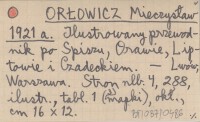 ORŁOWICZ Mieczysław
1921 a. Ilustrowany przewod-
nik po Spiszu, Orawie, Lip-
towie i Czadeckiem. — Lwów,
Warszawa. Stron nlb. 4, 288,
ilustr., tabl. 1 (mapki), okł.,
cm 16 × 12.